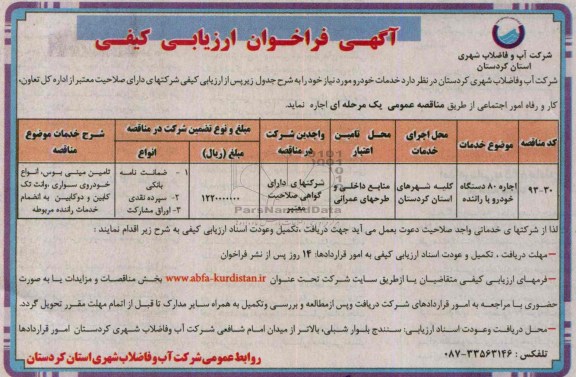 آگهی فراخوان ارزیابی کیفی
شرکت آب و فاضلاب شهری
استان کردستان
شرکت آب و فاضلاب شهری کردستان در نظر دارد خدمات خودرو مورد نیاز خود را به شرح جدول زیر پس از ارزیابی کیفی شرکتهای دارای صلاحیت معتبر از اداره کل تعاون،
کار و رفاه امور اجتماعی از طریق مناقصه عمومی یک مرحله ای اجاره نماید.
کد مناقصه
موضوع خدمات
محل اجرای خدمات
محل تامین اعتبار
واجدین شرکت در مناقصه
مبلغ و نوع تضمین شرکت در مناقصه
مبلغ (ریال)
انواع
شرح خدمات موضوع مناقصه
۹۳-۳۰
اجاره ۸۰ دستگاه
خودرو با راننده
کلیه شهرهای
استان کردستان
منابع داخلی و
طرحهای عمرانی
شرکتهای دارای
گواهی صلاحیت
معتبر
۱۲۲۰۰۰۰۰۰۰
۱- ضمانت نامه
بانکی
۲- سپرده نقدی
۳- اوراق مشارکت
تامین مینی بوس، انواع
خودروی سواری ،وانت تک
کابین و دوکابین به انضمام
خدمات راننده مربوطه
ParsNamadData
لذا از شرکتها ی خدماتی واجد صلاحیت دعوت بعمل می آید جهت دریافت ،تکمیل وعودت اسناد ارزیابی کیفی به شرح زیر اقدام نمایند :
–مهلت دریافت ، تکمیل و عودت اسناد ارزیابی کیفی به امور قراردادها: ۱۴ روز پس از نشر فراخوان
–فرمهای ارزیابی کیفی متقاضیان یا ازطریق سایت شرکت تحت عنوان www.abfa-kurdistan.ir بخش مناقصات و مزایدات یا به صورت
حضوری با مراجعه به امور قراردادهای شرکت دریافت وپس ازمطالعه و بررسی وتکمیل به همراه سایر مدارک تا قبل از اتمام مهلت مقرر تحویل گردد.
–محل دریافت وعودت اسناد ارزیابی: سنندج بلوار شبلی، بالاتر از میدان امام شافعی شرکت آب وفاضلاب شهری کردستان امور قراردادها
تلفکس : ۳۳۵۶۳۱۴۶-۰۸۷
روابط عمومی شرکت آب و فاضلاب شهری استان کردستان